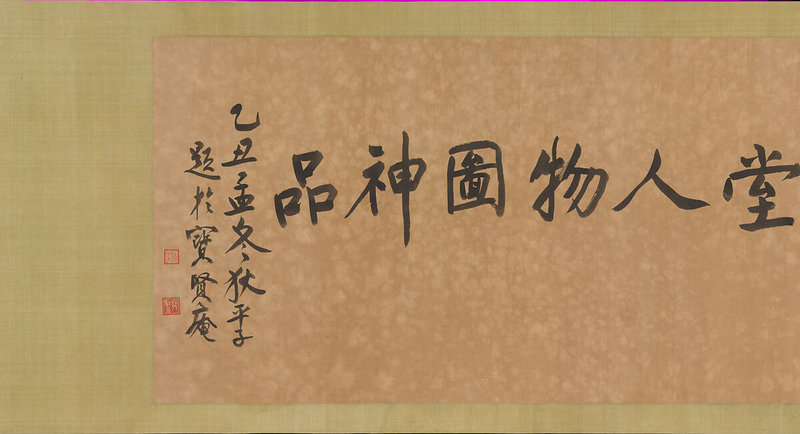 堂人物圖神品
乙丑孟冬狄平子
題於寶賢庵